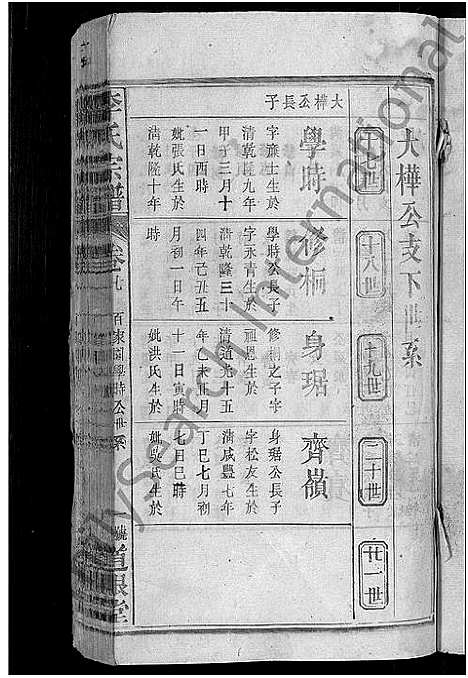 大樺公支下世系
十七世
十八世
十九世
二十世
廿一世
大樺公長子
學時
字㢘士生於
清乾隆九年
甲子三月十
一日酉時
妣張氏生於
清乾隆十年
修桐
學時公長子
字永青生於
清乾隆三十
四年己丑五
月初一日午
時
身琚
修桐之子字
祖恩生於
清道光十五
年乙未正月
十一日寅時
妣洪氏生於
齊嶺
身琚公長子
字松友生於
清咸豐七年
丁巳七月初
七日巳時
妣吳氏生於
李氏宗譜
卷九
百家園學時公世系
號
道根堂
MySearch International